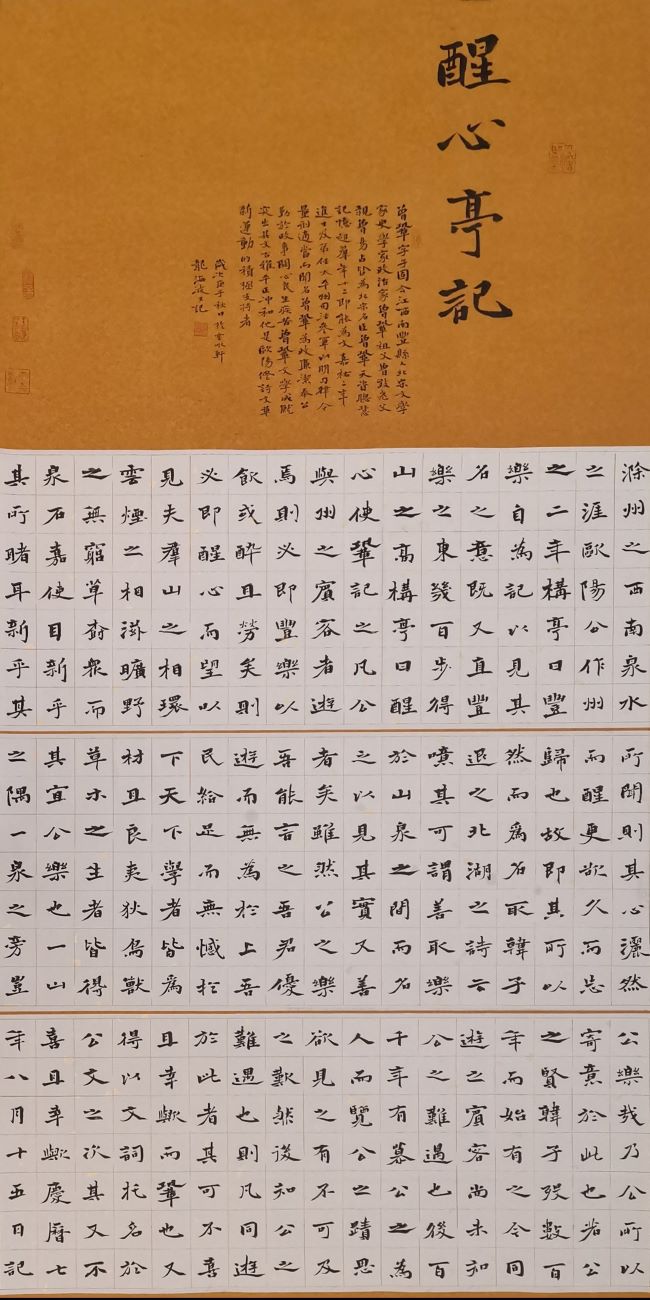 醒心亭記
曾鞏字子固今江西南豐縣人北宋文學
家史學家政治家曾鞏祖父曾致堯父
親曾易占皆為北宋名臣曾鞏天資聰慧
記憶超群年十二即能為文嘉祐二年
進士及第任太平州司法參軍以明習律令
量刑適當而聞名曾鞏為政廉潔奉公
勤於政事關心民生疾苦曾鞏文學成就
突出其文古雅平正沖和他是歐陽修詩文革
新運動的積極支持者
歲次庚子秋日於水軒
龍海波記
滁州之西南泉水
之涯歐陽公作州
之二年構亭曰豐
樂自為記以見其
名之意既又直豐
樂之東幾百步得
山之高構亭曰醒
心使鞏記之凡公
與州之賓客者遊
焉則必即豐樂以
飲或醉且勞矣則
必即醒心而望以
見夫羣山之相環
雲煙之相滋曠野
之無窮草樹眾而
泉石嘉使目新乎
其所睹耳新乎其
所聞則其心灑然
而醒更欲久而忘
歸也故即其所以
然而為名取韓子
退之北湖之詩云
噫其可謂善取樂
於山泉之間而名
之以見其實又善
者矣雖然公之樂
吾能言之吾君優
遊而無為於上吾
民給足而無憾於
下天下學者皆為
材且良夷狄鳥獸
草木之生者皆得
其宜公樂也一山
之隅一泉之旁豈
公樂哉乃公所以
寄意於此也若公
之賢韓子歿數百
年而始有之今同
遊之賓客尚未知
公之難遇也後百
千年有慕公之為
人而覽公之蹟思
欲見之有不可及
之歎然後知公之
難遇也則凡同遊
於此者其可不喜
且幸歟而鞏也又
得以文詞托名於
公文之次其又不
喜且幸歟慶曆七
年八月十五日記